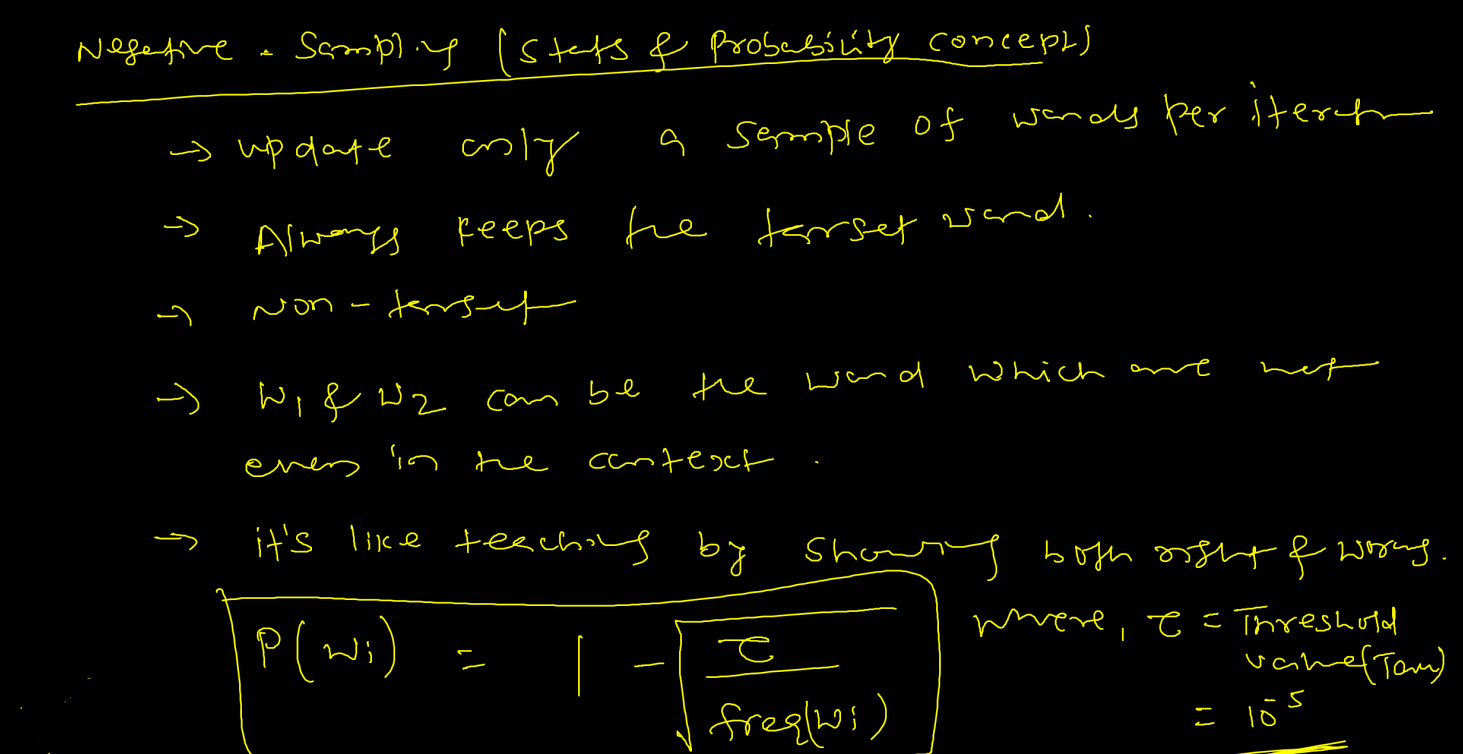 Negative - Sampling (Stats & Probability concepts)
→ update only a sample of words per iteration
→ Always keeps the target word.
→ Non-target
→ W₁ & W₂ can be the word which are not
even in the context.
→ it's like teaching by showing both right & wrong.
P(Wi) = 1 - √(τ / freq(Wi)) where, τ = Threshold
value(Tau)
= 10⁻⁵